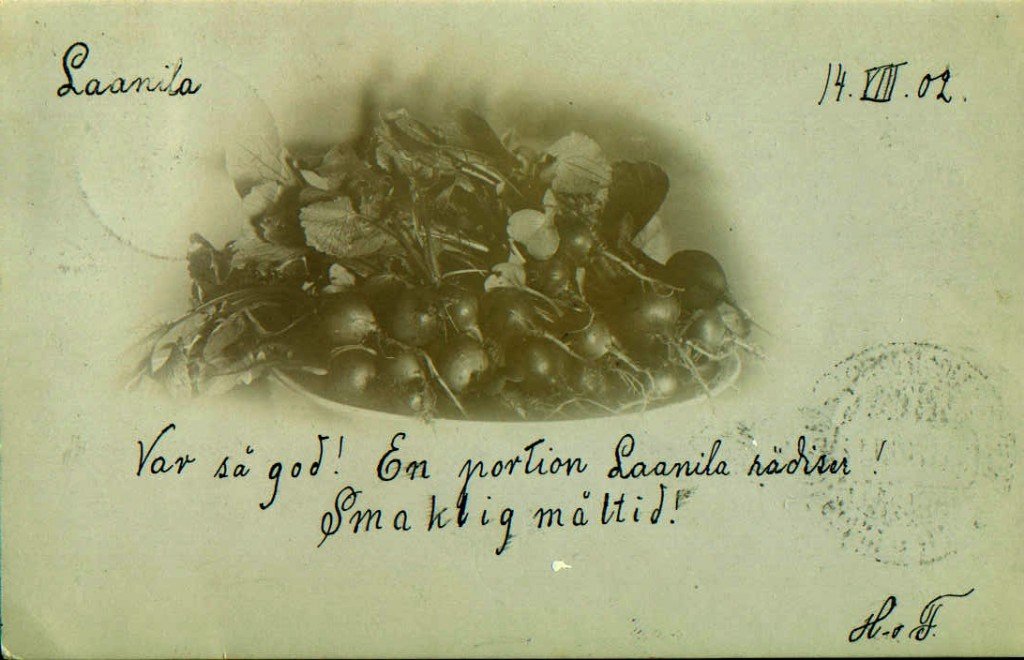 Laanila
14.VIII.02.
Var så god! En portion Laanila rädiser!
Smaklig måltid!
H. o. F.